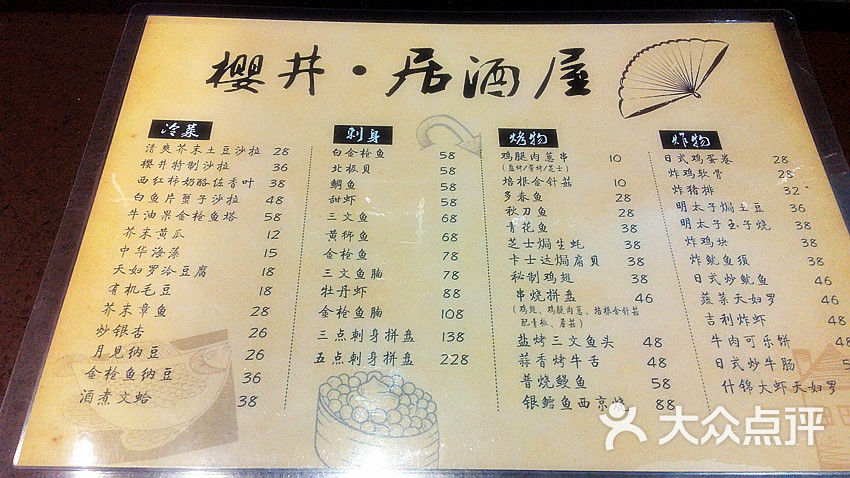 櫻井·居酒屋
冷菜
清爽芥末土豆沙拉 28
樱井特制沙拉 36
西红柿奶酪佐香叶 38
白鱼片蟹子沙拉 48
牛油果金枪鱼塔 58
芥末黄瓜 12
中华海藻 15
天妇罗冷豆腐 18
有机毛豆 18
芥末章鱼 28
炒银杏 26
月见纳豆 26
金枪鱼纳豆 36
酒煮文蛤 38
刺身
白金枪鱼 58
北极贝 58
鲷鱼 58
甜虾 58
三文鱼 68
黄狮鱼 68
金枪鱼 78
三文鱼腩 78
牡丹虾 88
金枪鱼腩 108
三点刺身拼盘 138
五点刺身拼盘 228
烤物
鸡腿肉葱串 10
(盐烤/酱烤/芝士)
培根金针菇 10
多春鱼 28
秋刀鱼 28
青花鱼 38
芝士焗生蚝 38
卡士达焗扇贝 38
秘制鸡翅 38
串烧拼盘 46
(鸡翅、鸡腿肉葱、培根金针菇
配青椒、蘑菇)
盐烤三文鱼头 48
蒜香烤牛舌 48
普烧鳗鱼 58
银鳕鱼西京烧 88
炸物
日式鸡蛋卷 28
炸鸡软骨 28
炸猪排 32
明太子焗土豆 36
明太子玉子烧 38
炸鸡块 38
炸鱿鱼须 38
日式炒鱿鱼 46
蔬菜天妇罗 46
吉利炸虾 48
牛肉可乐饼 48
日式炒牛肠
什锦大虾天妇罗
大众点评